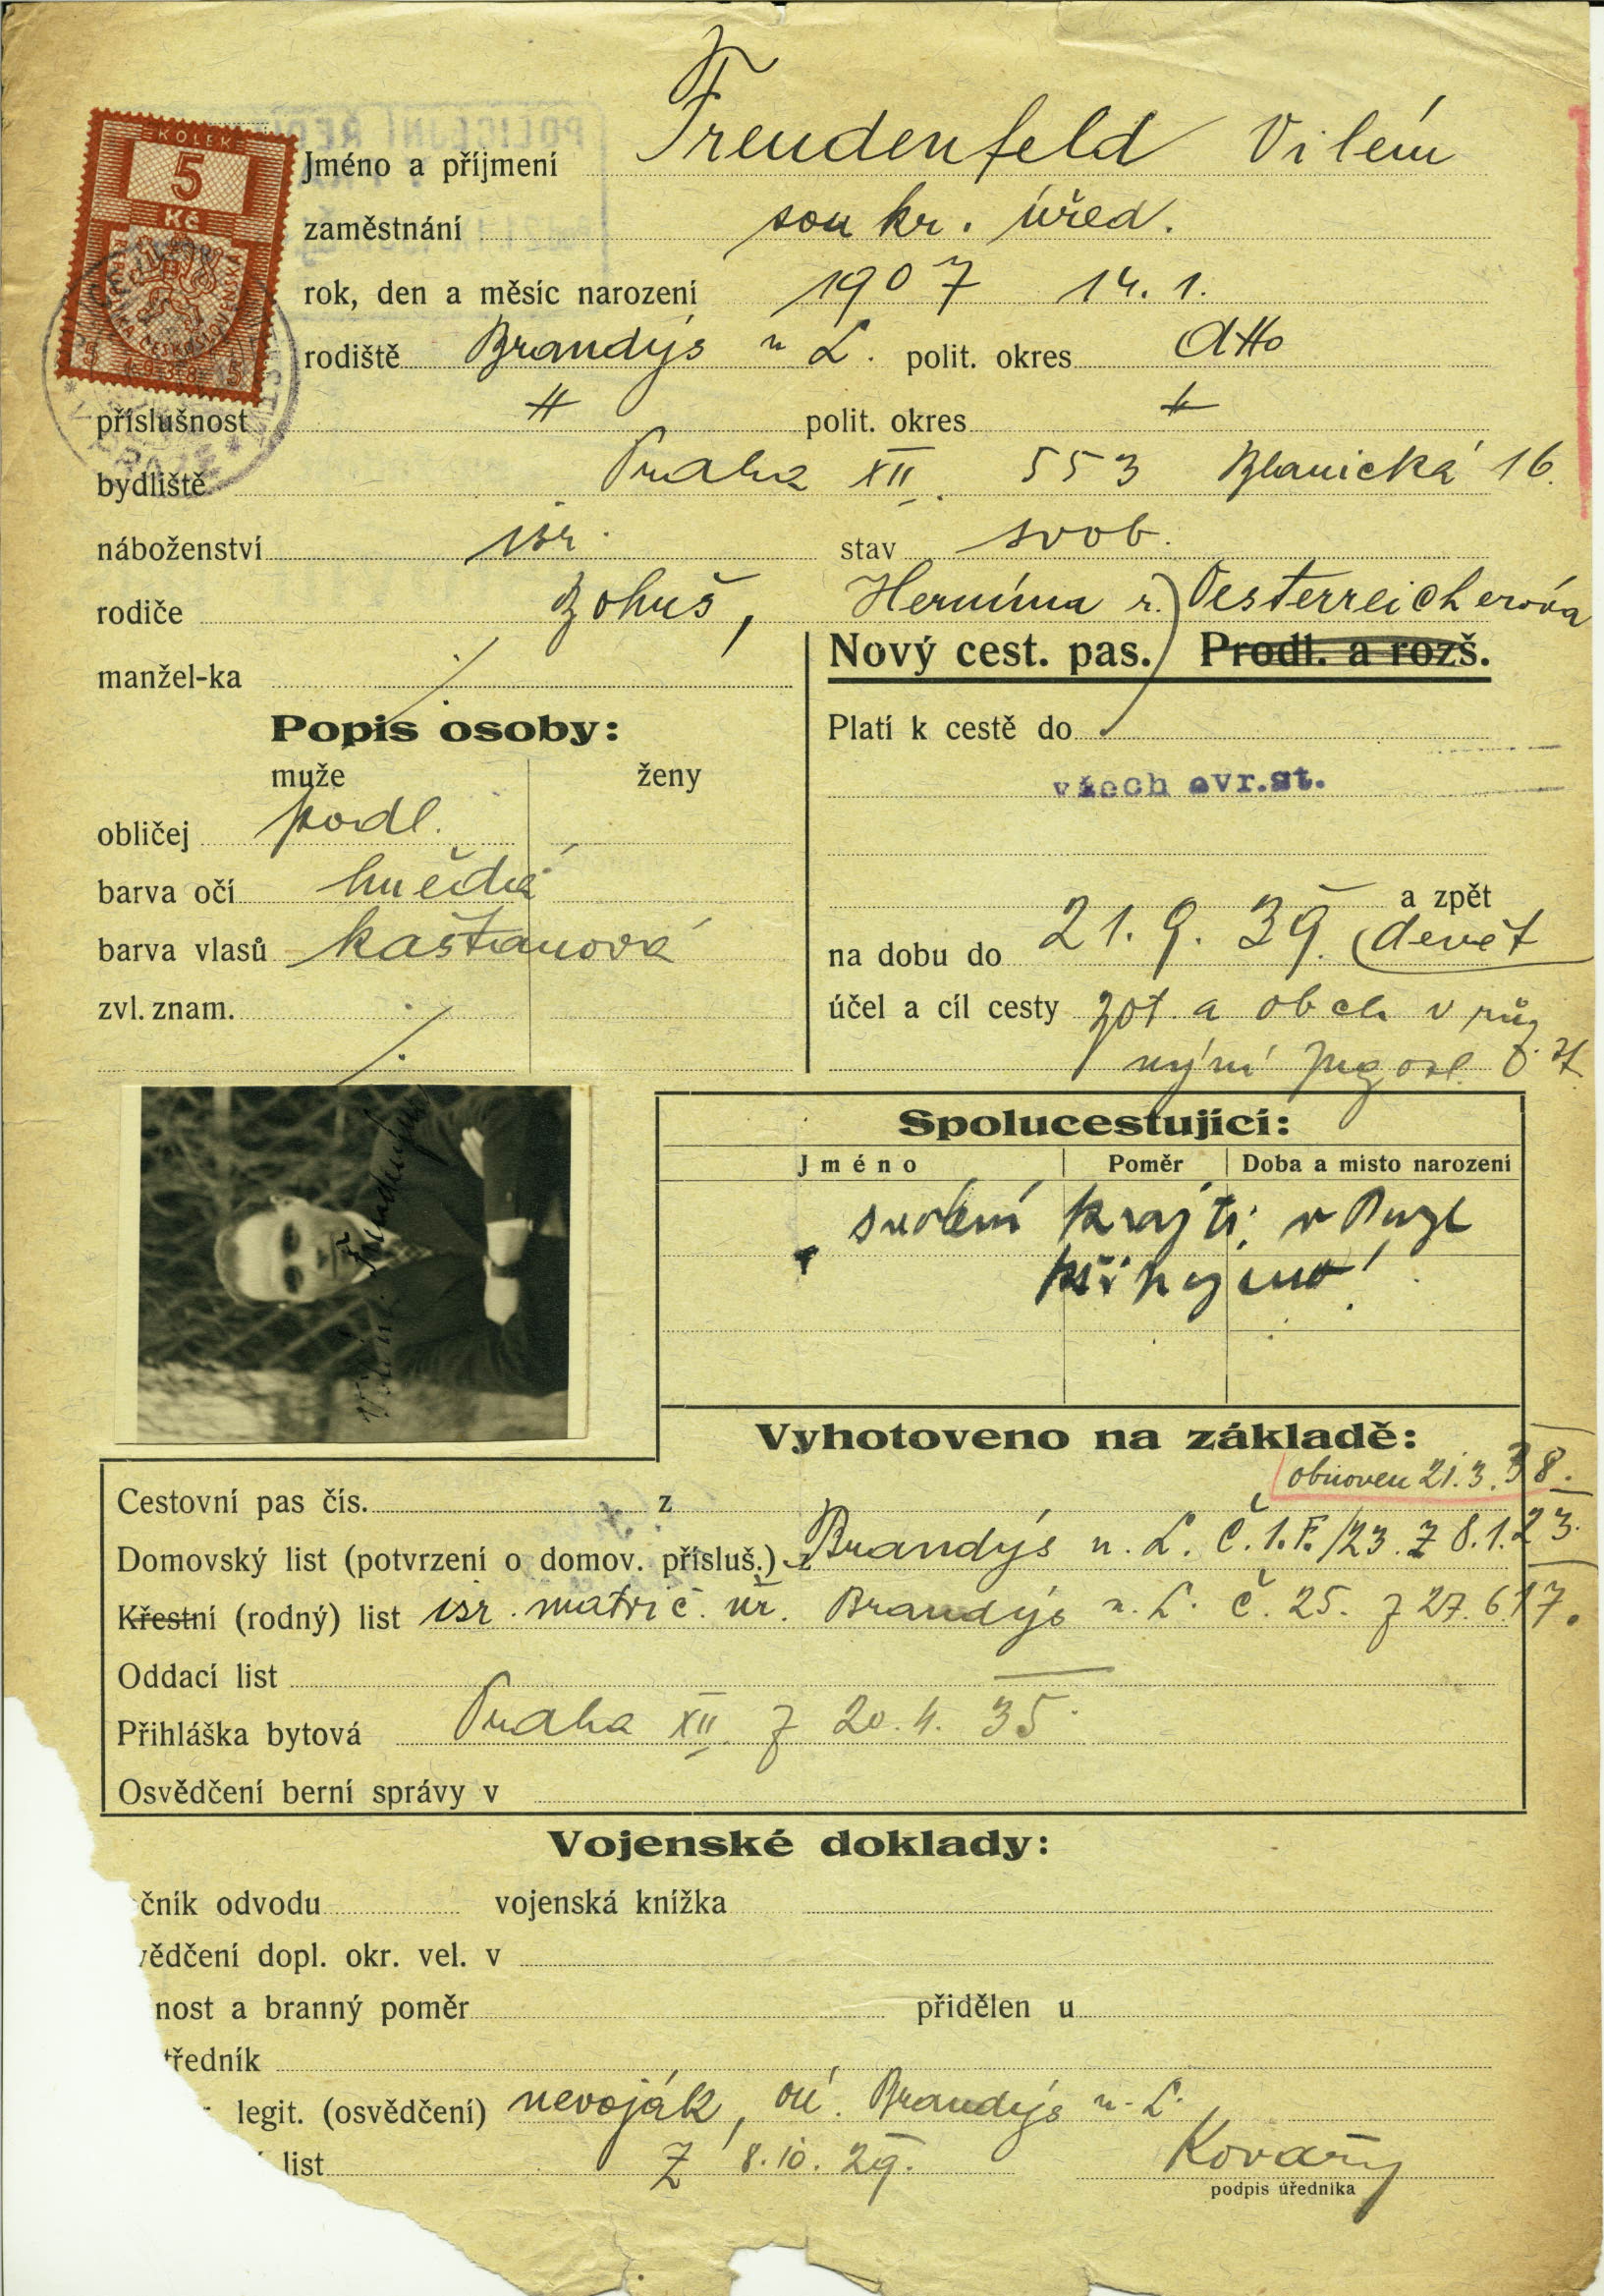 KOLEK
5
Kč
REPUBLIKA ČESKOSLOVENSKÁ
5 1938 5
Jméno a příjmení Freudenfeld Vilém
zaměstnání soukr. úřed.
rok, den a měsíc narození 1907 14. 1.
rodiště Brandýs n L. polit. okres dtto
příslušnost " polit. okres "
bydliště Praha XII. 553 Blanická 16.
náboženství isr. stav svob.
rodiče Bohuš, Hermína r. Oesterreicherova
manžel-ka
Nový cest. pas. Prodl. a rozš.
Popis osoby:
muže ženy
obličej podl.
barva očí hnědá
barva vlasů kaštanová
zvl. znam.
Platí k cestě do
všech evr.st.
a zpět
na dobu do 21. 9. 39. (devět
účel a cíl cesty zot. a obch v růz
nyní Jugosl.
Vilém Freudenfeld
Spolucestující:
Jméno Poměr Doba a místo narození
Vyhotoveno na základě:
obnoven 21.3.38.
Cestovní pas čís. z
Domovský list (potvrzení o domov. přísluš.) z Brandýs n. L. č.1.F./23. z 8.1.23.
Křestní (rodný) list isr. matrič. úř. Brandýs n. L. č. 25. z 27.6.17.
Oddací list
Přihláška bytová Praha XII. z 20. 4. 35.
Osvědčení berní správy v
Vojenské doklady:
čník odvodu vojenská knížka
vědčení dopl. okr. vel. v
nost a branný poměr přidělen u
středník
legit. (osvědčení) nevoják, Brandýs n. L.
list z 8. 10. 29. Kovařy
podpis úředníka